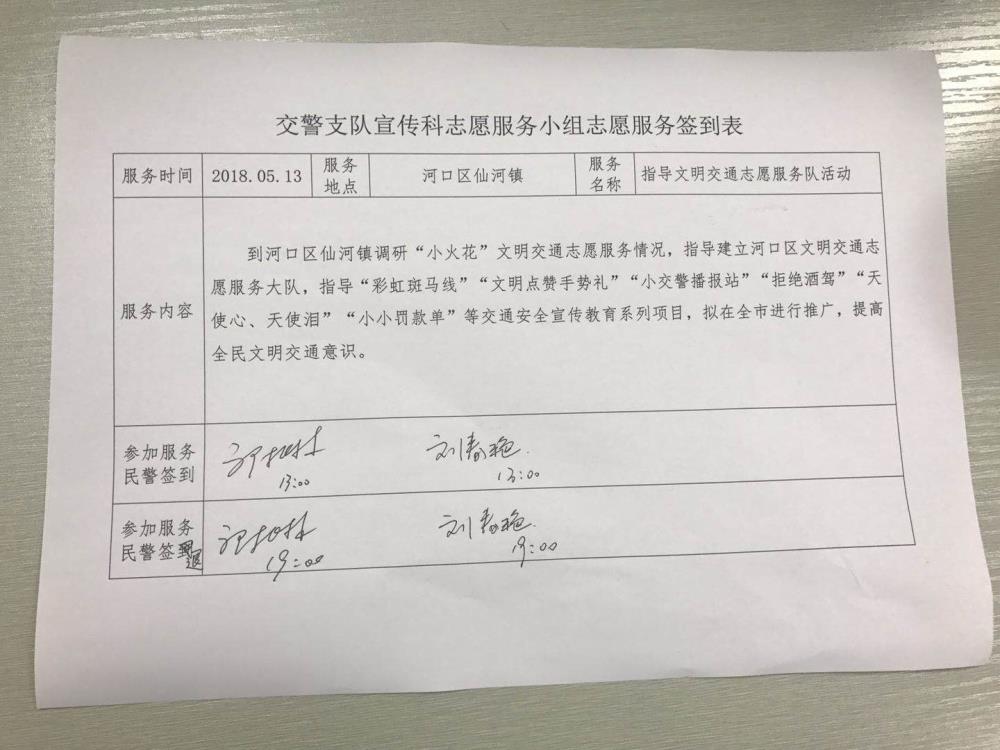 交警支队宣传科志愿服务小组志愿服务签到表
服务时间 2018.05.13 服务地点 河口区仙河镇 服务名称 指导文明交通志愿服务队活动
服务内容
到河口区仙河镇调研“小火花”文明交通志愿服务情况，指导建立河口区文明交通志
愿服务大队，指导“彩虹斑马线”“文明点赞手势礼”“小交警播报站”“拒绝酒驾”“天
使心、天使泪”“小小罚款单”等交通安全宣传教育系列项目，拟在全市进行推广，提高
全民文明交通意识。
参加服务
民警签到
刘春艳
13:00 13:00
参加服务
民警签退
刘春艳
19:00 19:00